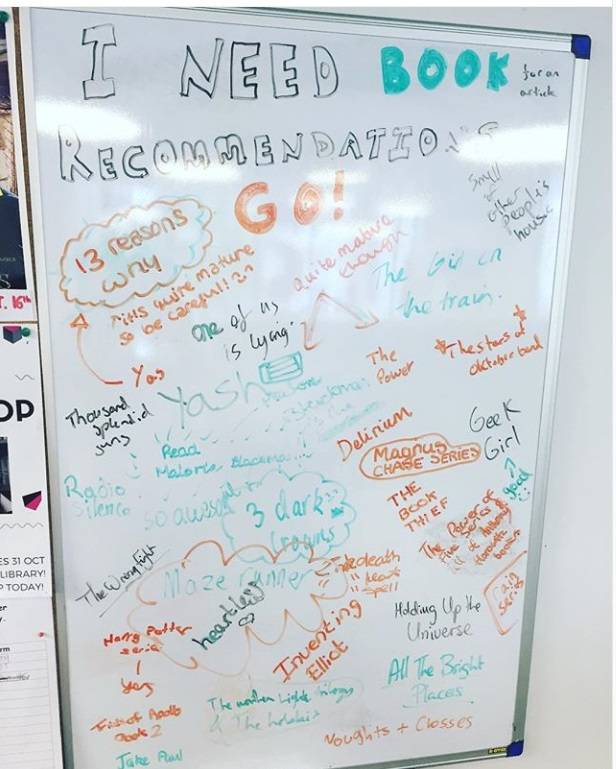 I NEED BOOK
for an
article
RECOMMENDATIONS
GO!
Smell
of
other
people's
houses
13 reasons
why
quite mature
so be careful!!
quite mature
though
The Girl on
the train.
one of us
is lying.
Yas
The
Power
The stars at
oktober bend
Thousand
splendid
suns
Yash
Read
Malorie Blackman
Delirium
MAGNUS
CHASE SERIES
Geek
Girl
good
Radio
Silence
so awesome
3 dark
crowns
THE
BOOK
THIEF
The Power of
five series &
all of Anthony
Horowitz
books
The Wrong Fight
Maze runner
death
heart
spell
heartless
Cain
series
Holding Up the
Universe
Harry Potter
series
Yes
Inventing
Elliot
All The Bright
Places
The northern Lights trilogy
Trials of Apollo
Book 2
Jake Paul
Noughts + Crosses
T. 16th
OP
ES 31 OCT
LIBRARY!
P TODAY!